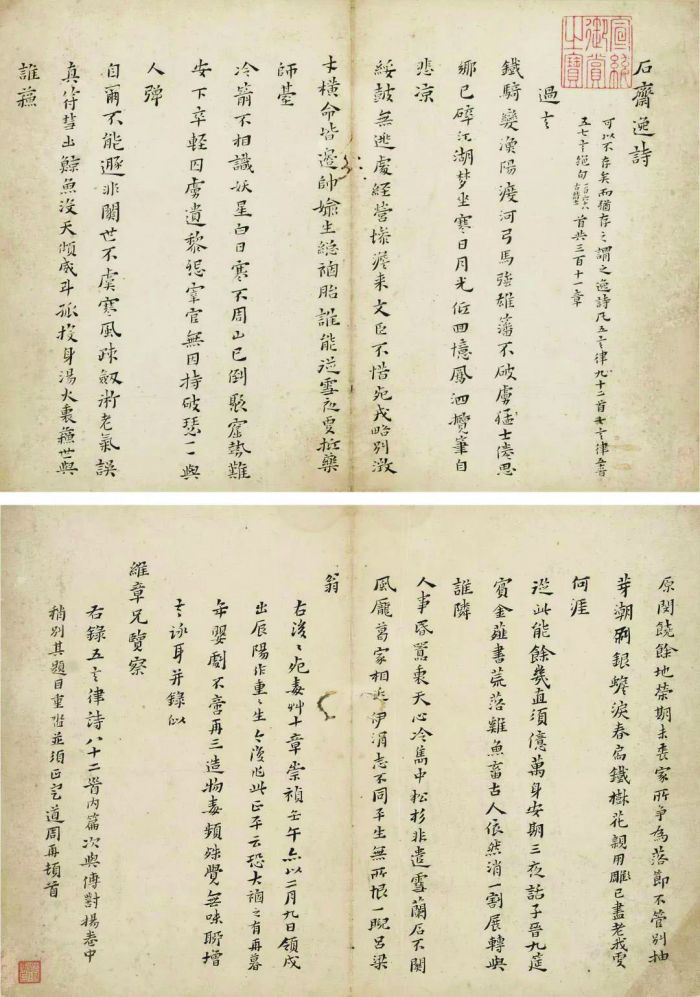 石齋逸詩
可以不存矣而猶存之謂之逸詩凡五言律九十二首七言律
五七言絕句 首共三百十一章
過
鐵騎孿漁陽渡河弓馬強雄藩不破虜猛士倦思
鄉已碎江湖夢坐寒日月光低回憶鳳泗攬筆自
悲涼
綏鼓無逃處經營慘澹來文臣不惜死戎略別
才橫命皆邊帥媮生總禍胎誰能逆雪夜更抵藥
師臺
冷箭不相識妖星白日寒不周山已倒聚窟勢難
安下卒輕囚虜遺黎怨宰官無因持破瑟一一與
人彈
自爾不能遯非關世不虞寒風疎劍術老氣誤
真符彗出鯨魚沒天傾威斗孤投身湯火裏 世與
誰蘓
宣統御賞之寶
原閔饒餘地榮期未喪家所爭為落節不管別抽
芽潮刷銀蟾淚春扃鐵樹花親用雕已盡老我更
何涯
從此能餘幾直須億萬身安期三夜話子晉九筵
賓金薤書荒落雞魚畜古人依然消一割展轉與
誰隣
人事啄囂裏天心冷雋中松杉非遣雪蘭石不關
風龐葛家相近伊涓志不同平生無所恨一睨呂梁
翁
右後 死毒艸十章崇禎壬午亦以二月九日領戍
出辰陽作重〻生今後作此正平云恐大禍之有再暮
年嬰劇不啻再三造物毒頻殊覺無味聊增
言詠耳并錄似
維章兄覽察
右錄五言律詩八十二首內篇次與傳對揚卷中
稍別其題目重沓並須正定道周再頓首